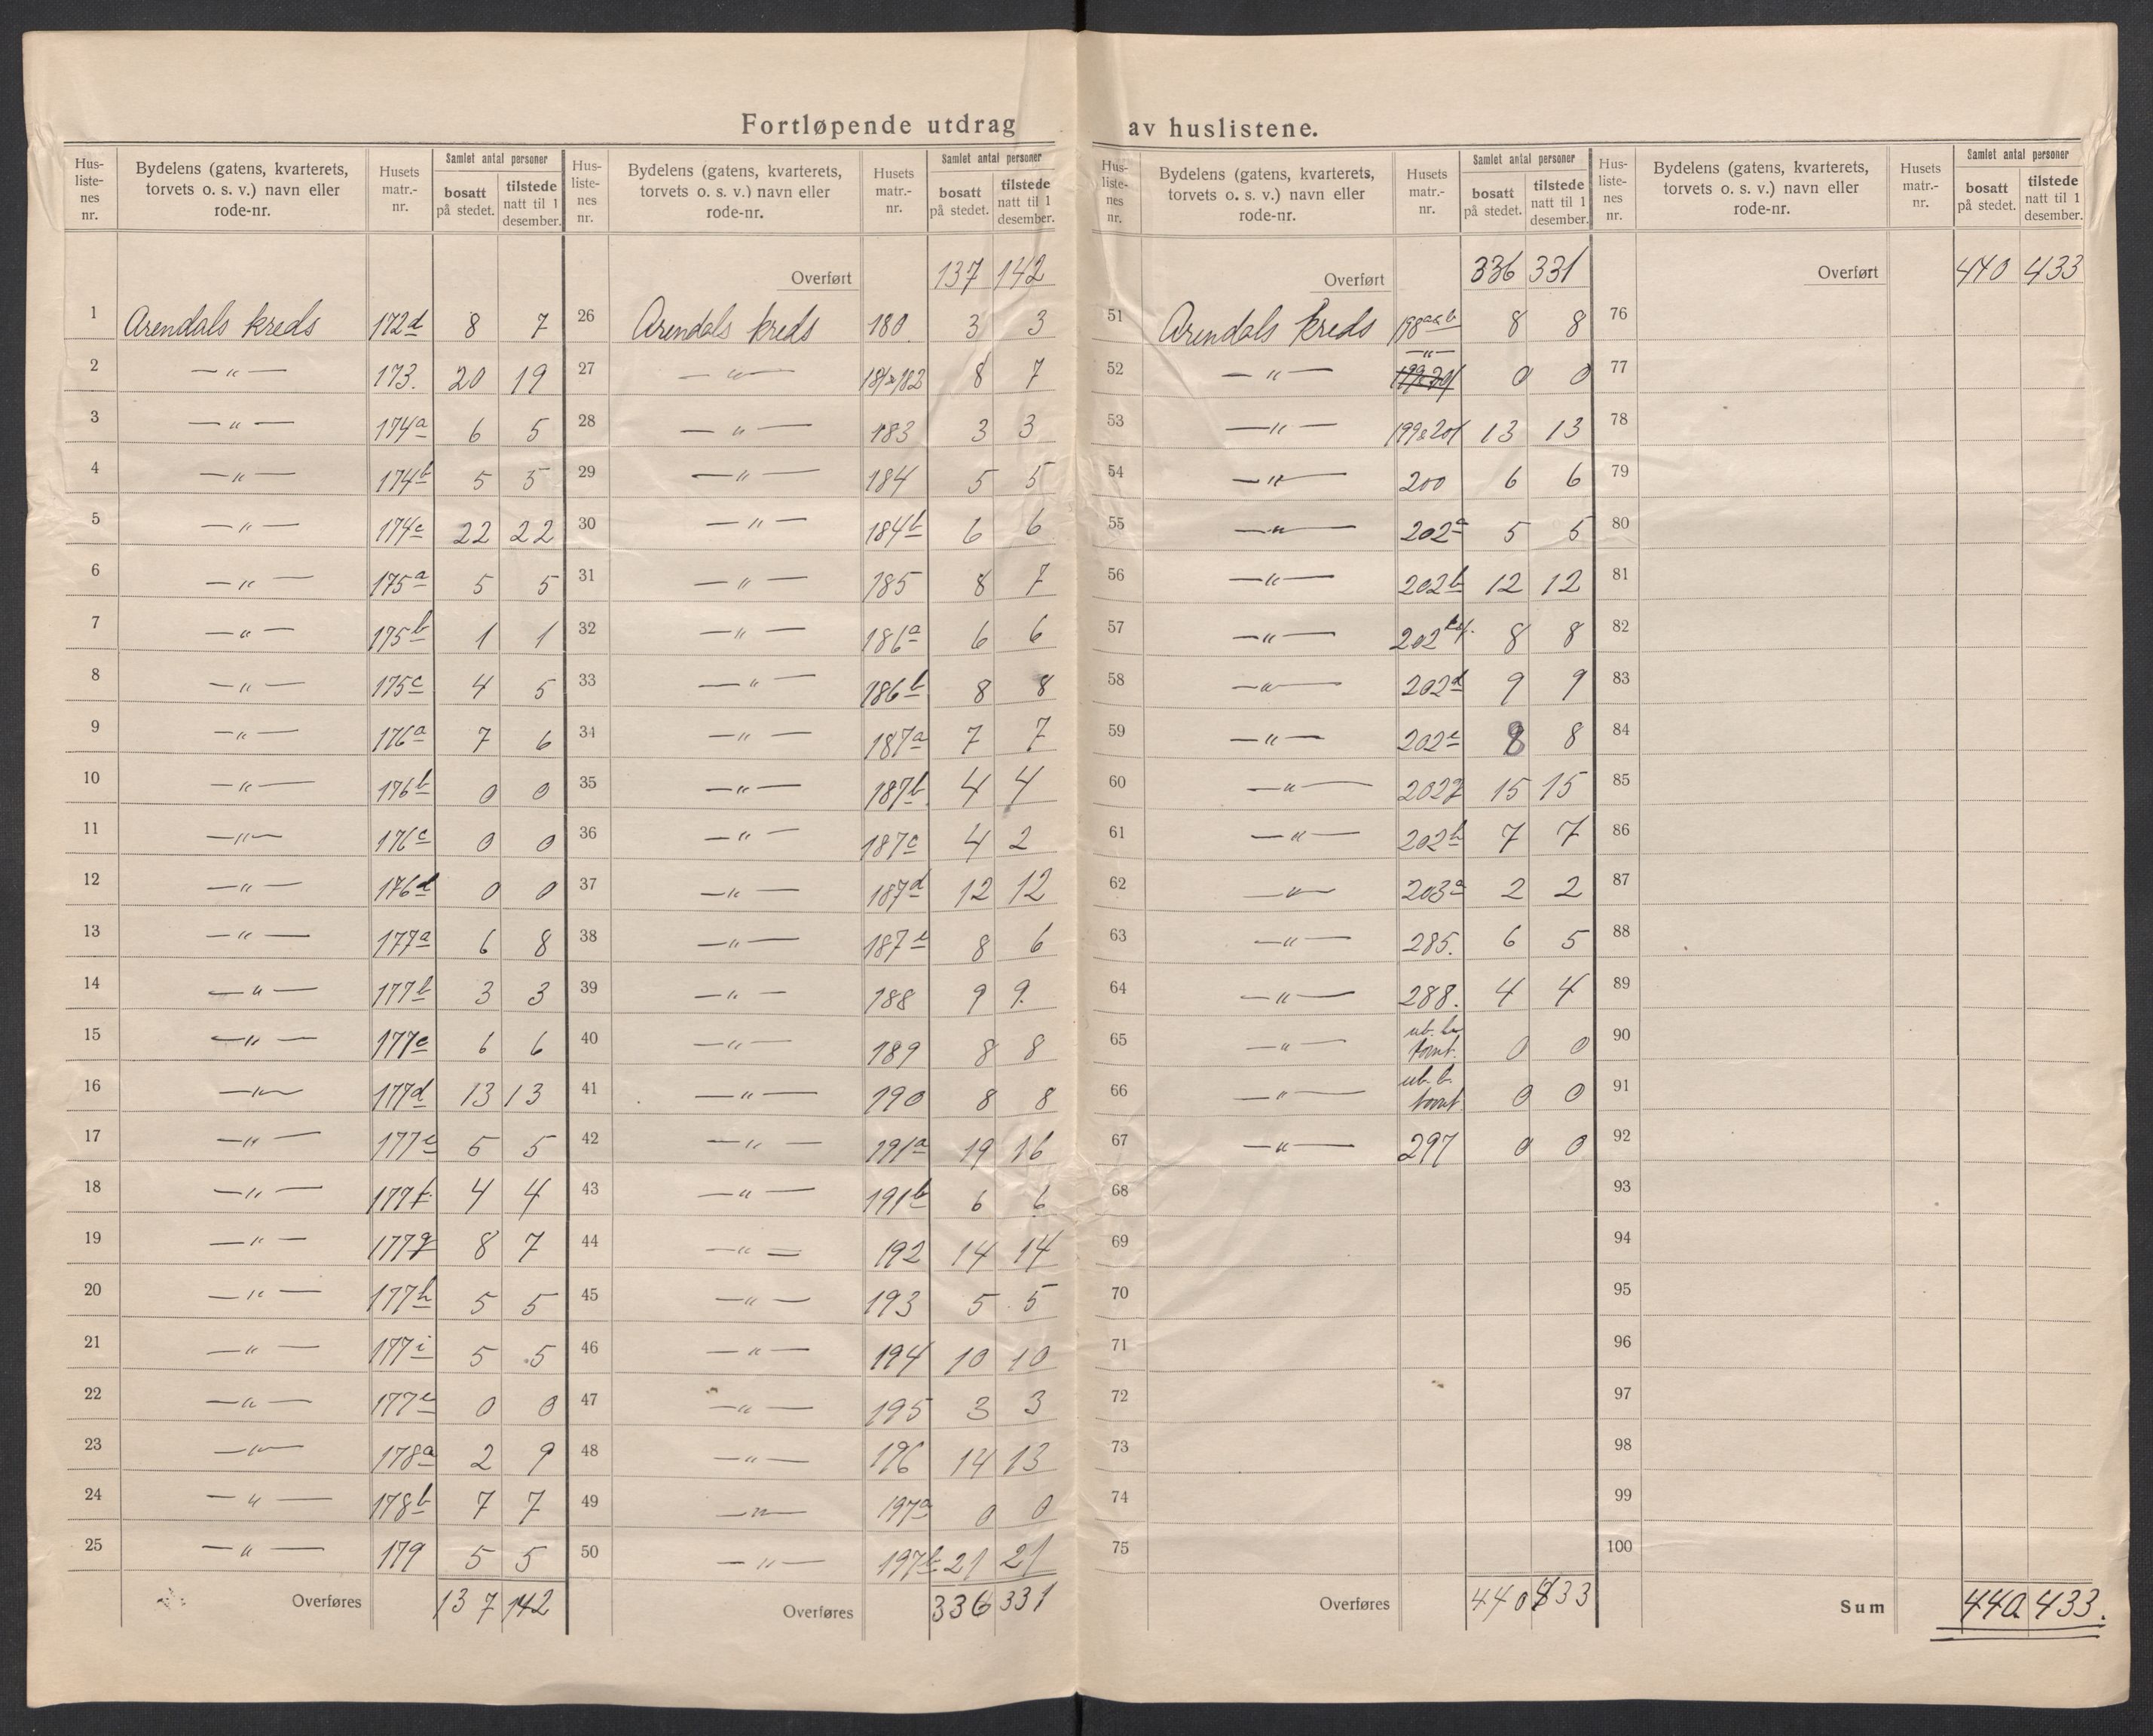 Fortløpende utdrag av huslistene.
Hus-listenes nr. Bydelens (gatens, kvarterets, torvets o. s. v.) navn eller rode-nr. Husets matr.-nr. Samlet antal personer bosatt på stedet. tilstede natt til 1 desember.
1 Arendals kreds 172d 8 7
2 —"— 173. 20 19
3 —"— 174a 6 5
4 —"— 174b 5 5
5 —"— 174c 22 22
6 —"— 175a 5 5
7 —"— 175b 1 1
8 —"— 175c 4 5
9 —"— 176a 7 6
10 —"— 176b 0 0
11 —"— 176c 0 0
12 —"— 176d 0 0
13 —"— 177a 6 8
14 —"— 177b 3 3
15 —"— 177c 6 6
16 —"— 177d 13 13
17 —"— 177e 5 5
18 —"— 177f 4 4
19 —"— 177g 8 7
20 —"— 177h 5 5
21 —"— 177i 5 5
22 —"— 177e 0 0
23 —"— 178a 2 9
24 —"— 178b 7 7
25 —"— 179 5 5
Overføres 137 142
Hus-listenes nr. Bydelens (gatens, kvarterets, torvets o. s. v.) navn eller rode-nr. Husets matr.-nr. Samlet antal personer bosatt på stedet. tilstede natt til 1 desember.
Overført 137 142
26 Arendals kreds 180 3 3
27 —"— 181&182 8 7
28 —"— 183 3 3
29 —"— 184 5 5
30 —"— 184b 6 6
31 —"— 185 8 7
32 —"— 186a 6 6
33 —"— 186b 8 8
34 —"— 187a 7 7
35 —"— 187b 4 4
36 —"— 187c 4 2
37 —"— 187d 12 12
38 —"— 187e 8 6
39 —"— 188 9 9.
40 —"— 189 8 8
41 —"— 190 8 8
42 —"— 191a 19 16
43 —"— 191b 6 6
44 —"— 192 14 14
45 —"— 193 5 5
46 —"— 194 10 10
47 —"— 195 3 3
48 —"— 196 14 13
49 —"— 197a 0 0
50 —"— 197b 21 21
Overføres 336 331
Hus-listenes nr. Bydelens (gatens, kvarterets, torvets o. s. v.) navn eller rode-nr. Husets matr.-nr. Samlet antal personer bosatt på stedet. tilstede natt til 1 desember.
Overført 336 331
51 Arendals kreds 198a&b 8 8
52 —"— —"— 0 0
53 —"— 199&201 13 13
54 —"— 200 6 6
55 —"— 202a 5 5
56 —"— 202b 12 12
57 —"— 202 8 8
58 —"— 202d 9 9
59 —"— 202e 8 8
60 —"— 202g 15 15
61 —"— 202h 7 7
62 —"— 203a 2 2
63 —"— 285. 6 5
64 —"— 288. 4 4
65 —"— ub. tomt. 0 0
66 —"— ub. b. tomt. 0 0
67 —"— 297 0 0
68
69
70
71
72
73
74
75
Overføres 440 433
Hus-listenes nr. Bydelens (gatens, kvarterets, torvets o. s. v.) navn eller rode-nr. Husets matr.-nr. Samlet antal personer bosatt på stedet. tilstede natt til 1 desember.
Overført 440 433
76
77
78
79
80
81
82
83
84
85
86
87
88
89
90
91
92
93
94
95
96
97
98
99
100
Sum 440 433.